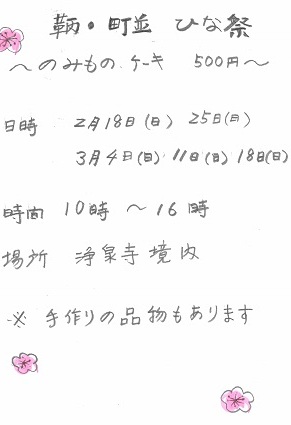 鞆・町並 ひな祭
～のみもの.ケーキ 500円～
日時 2月18日(日) 25日(日)
3月4日(日) 11日(日) 18日(日)
時間 10時 ～16時
場所 浄泉寺境内
※ 手作りの品物もあります